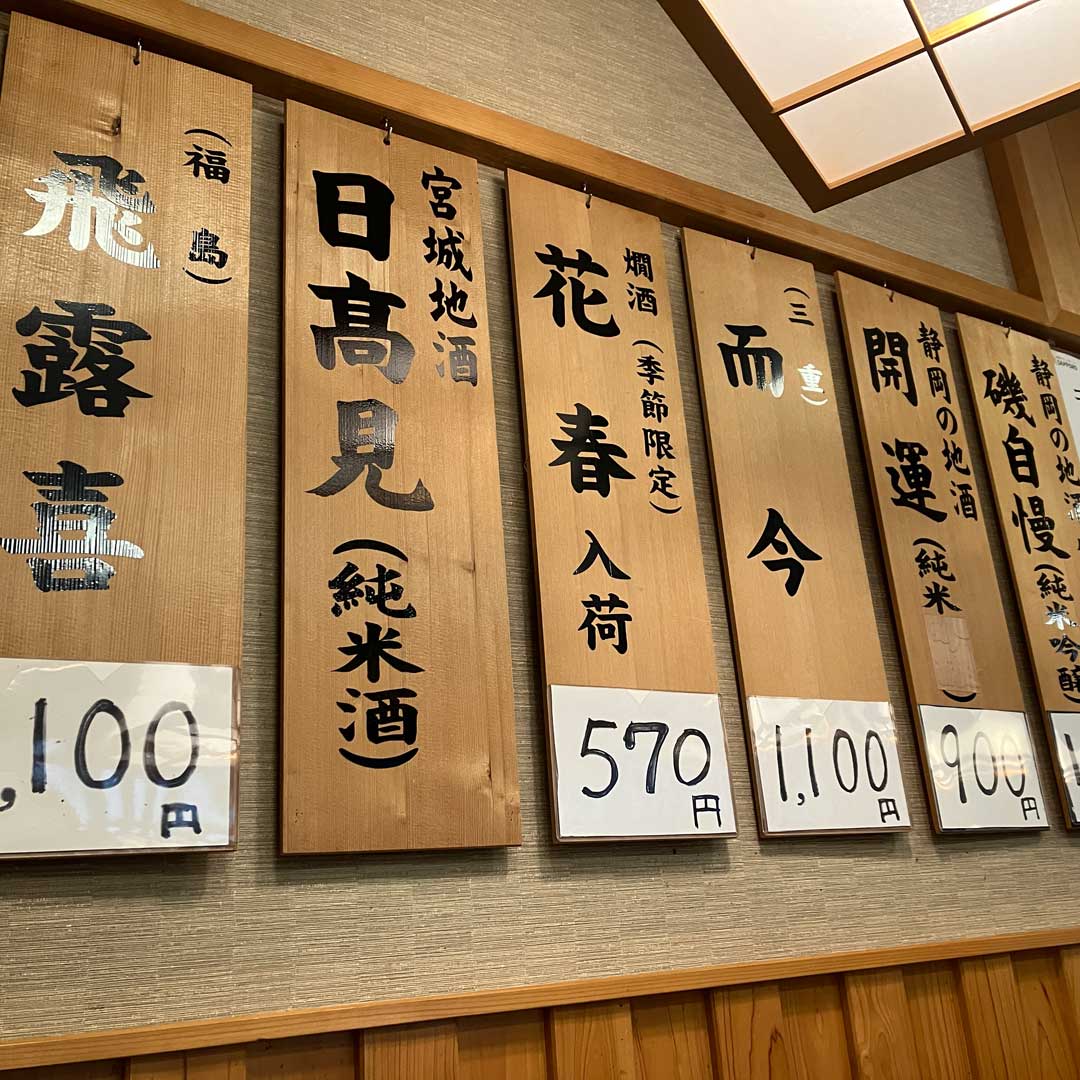 （福島）
飛露喜
,100円
宮城地酒
日高見（純米酒）
燗酒（季節限定）
花春入荷
570円
（三重）
而今
1,100円
静岡の地酒
開運（純米）
900円
静岡の地酒
磯自慢（純米吟醸